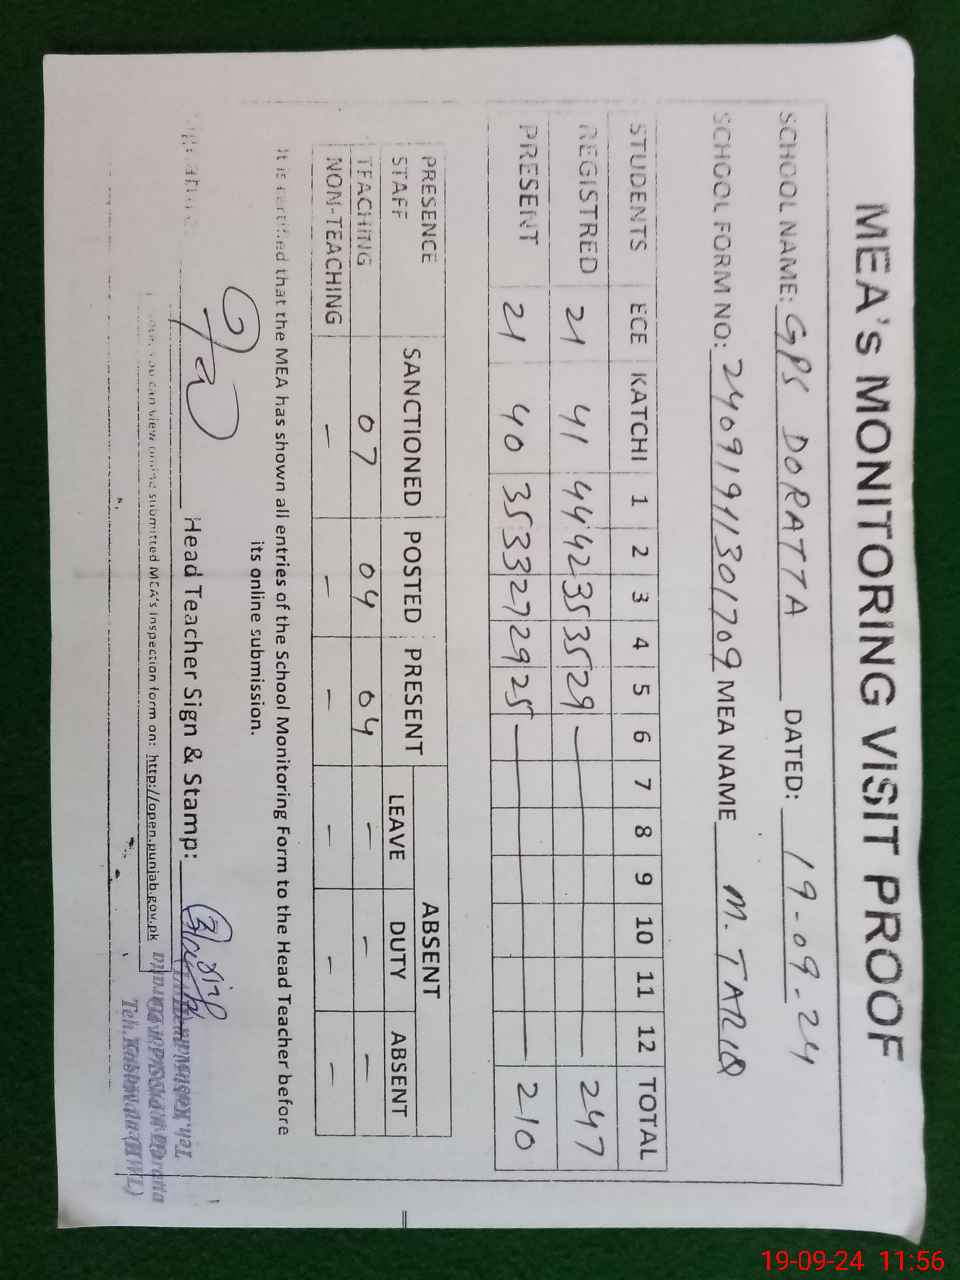 MEA's MONITORING VISIT PROOF
SCHOOL NAME: GPS DORATTA DATED: 19-09-24
SCHOOL FORM NO: 24091941301709 MEA NAME M. TARIQ
STUDENTS ECE KATCHI 1 2 3 4 5 6 7 8 9 10 11 12 TOTAL
REGISTRED 21 41 44 42 35 35 29 — 247
PRESENT 21 40 35 33 27 29 25 — 210
PRESENCE STAFF SANCTIONED POSTED PRESENT ABSENT
LEAVE DUTY ABSENT
TEACHING 07 04 04 — — —
NON-TEACHING — — — — — —
It is certified that the MEA has shown all entries of the School Monitoring Form to the Head Teacher before
its online submission.
Head Teacher Sign & Stamp:
you can view online submitted MEA's Inspection form on: http://open.punjab.gov.pk
19-09-24 11:56